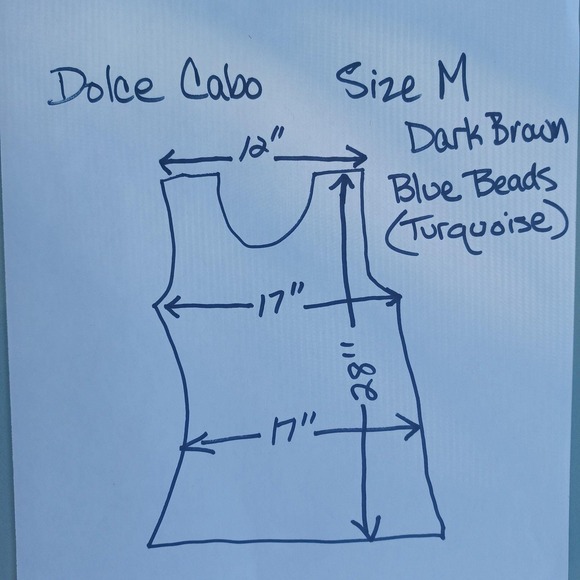 Dolce Cabo Size M
Dark Brown
Blue Beads
(Turquoise)
12"
17"
28"
17"